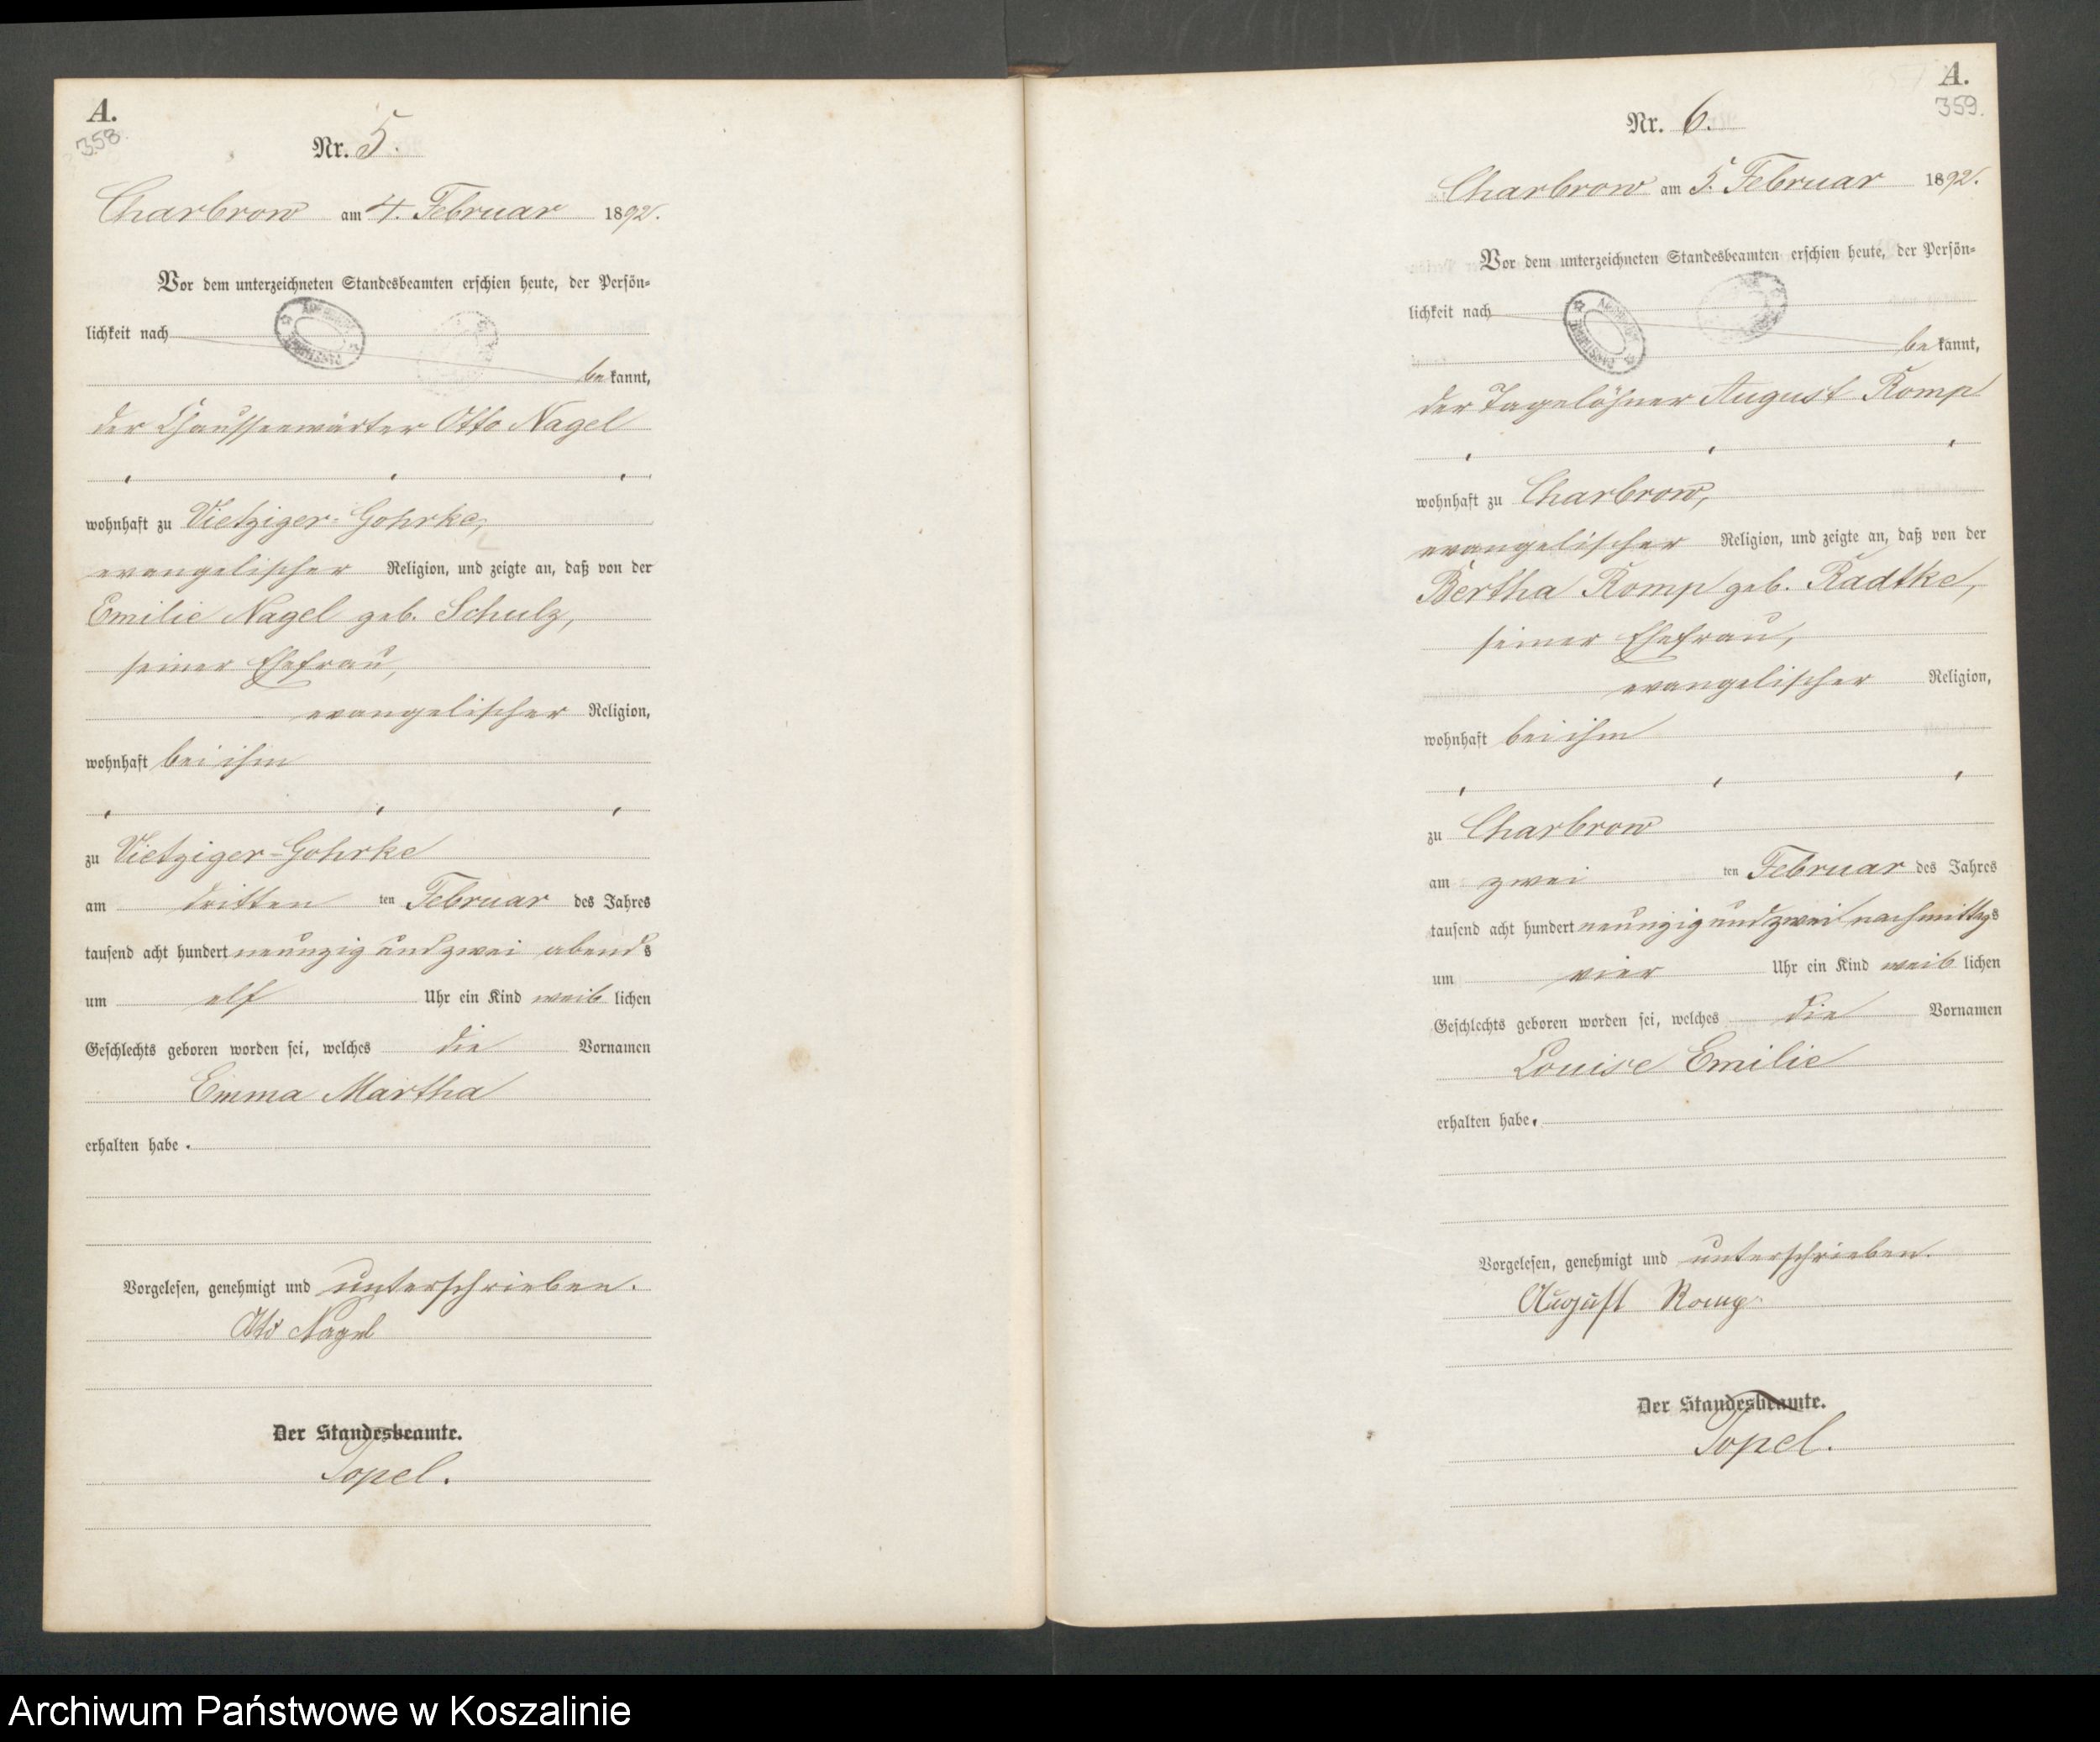 A.
358.
Nr. 5.
Charbrow am 4. Februar 1892.
Vor dem unterzeichneten Standesbeamten erschien heute, der Persön-
lichkeit nach
bekannt,
der Chausseewärter Otto Nagel
wohnhaft zu Vietziger-Gohrke,
evangelischer Religion, und zeigte an, daß von der
Emilie Nagel geb. Schulz,
seiner Ehefrau,
evangelischer Religion,
wohnhaft bei ihm
zu Vietziger-Gohrke
am dritten ten Februar des Jahres
tausend acht hundert neunzig und zwei abends
um elf Uhr ein Kind weiblichen
Geschlechts geboren worden sei, welches die Vornamen
Emma Martha
erhalten habe.
Vorgelesen, genehmigt und unterschrieben.
Otto Nagel
Der Standesbeamte.
Topel.
A.
359.
Nr. 6.
Charbrow am 5. Februar 1892.
Vor dem unterzeichneten Standesbeamten erschien heute, der Persön-
lichkeit nach
bekannt,
der Tagelöhner August Romp
wohnhaft zu Charbrow,
evangelischer Religion, und zeigte an, daß von der
Bertha Romp geb. Radtke,
seiner Ehefrau,
evangelischer Religion,
wohnhaft bei ihm
zu Charbrow
am zwei ten Februar des Jahres
tausend acht hundert neunzig und zwei nachmittags
um vier Uhr ein Kind weiblichen
Geschlechts geboren worden sei, welches die Vornamen
Louise Emilie
erhalten habe.
Vorgelesen, genehmigt und unterschrieben.
August Romp
Der Standesbeamte.
Topel.
Archiwum Państwowe w Koszalinie